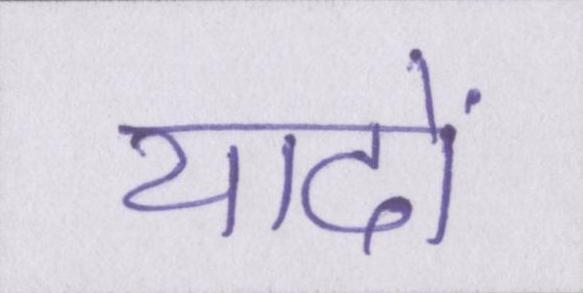 यादों